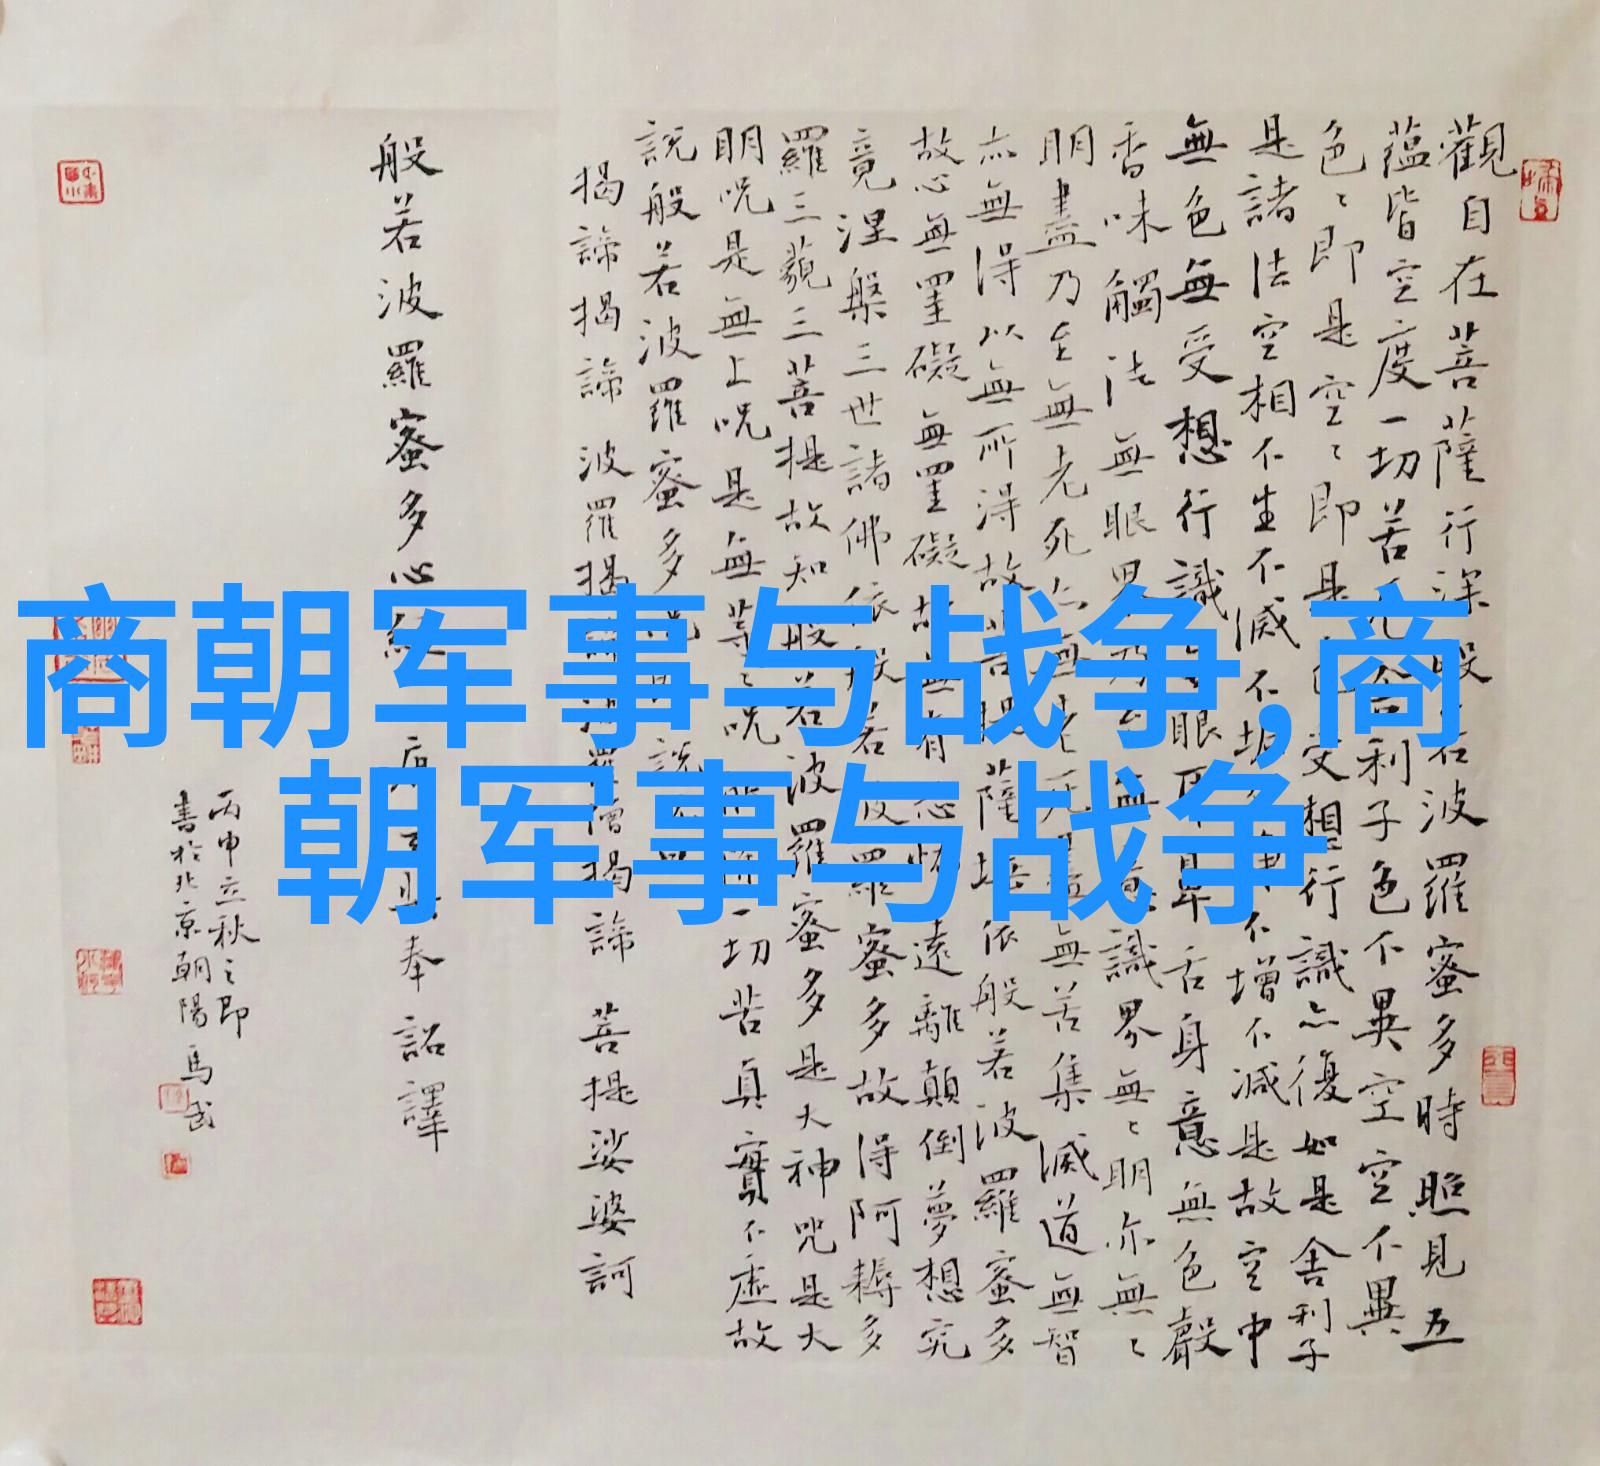 觀自在菩薩行深般若波羅蜜多時照見五
蘊皆空度一切苦厄舍利子色不異空空不異
色〻即是空〻即是色受想行識亦復如是舍利子
是諸法空相不生不滅不垢不淨不增不減是故空中
無色無受想行識無眼耳鼻舌身意無色聲
香味觸法無眼界乃至無意識界無〻明亦無〻
明盡乃至無老死亦無老死盡無苦集滅道無智
亦無得以無所得故菩提薩埵依般若波羅蜜多
故心無罣礙無罣礙故無有恐怖遠離顛倒夢想究
竟涅槃三世諸佛依般若波羅蜜多故得阿耨多
羅三藐三菩提故知般若波羅蜜多是大神咒是大
明咒是無上咒是無等〻咒能除一切苦真實不虛故
説般若波羅蜜多咒即説咒曰
揭諦揭諦波羅揭諦波羅僧揭諦菩提娑婆訶
般若波羅蜜多心經唐玄奘奉詔譯
丙申立秋之即
書於北京朝陽馬
商朝军事与战争,商
朝军事与战争